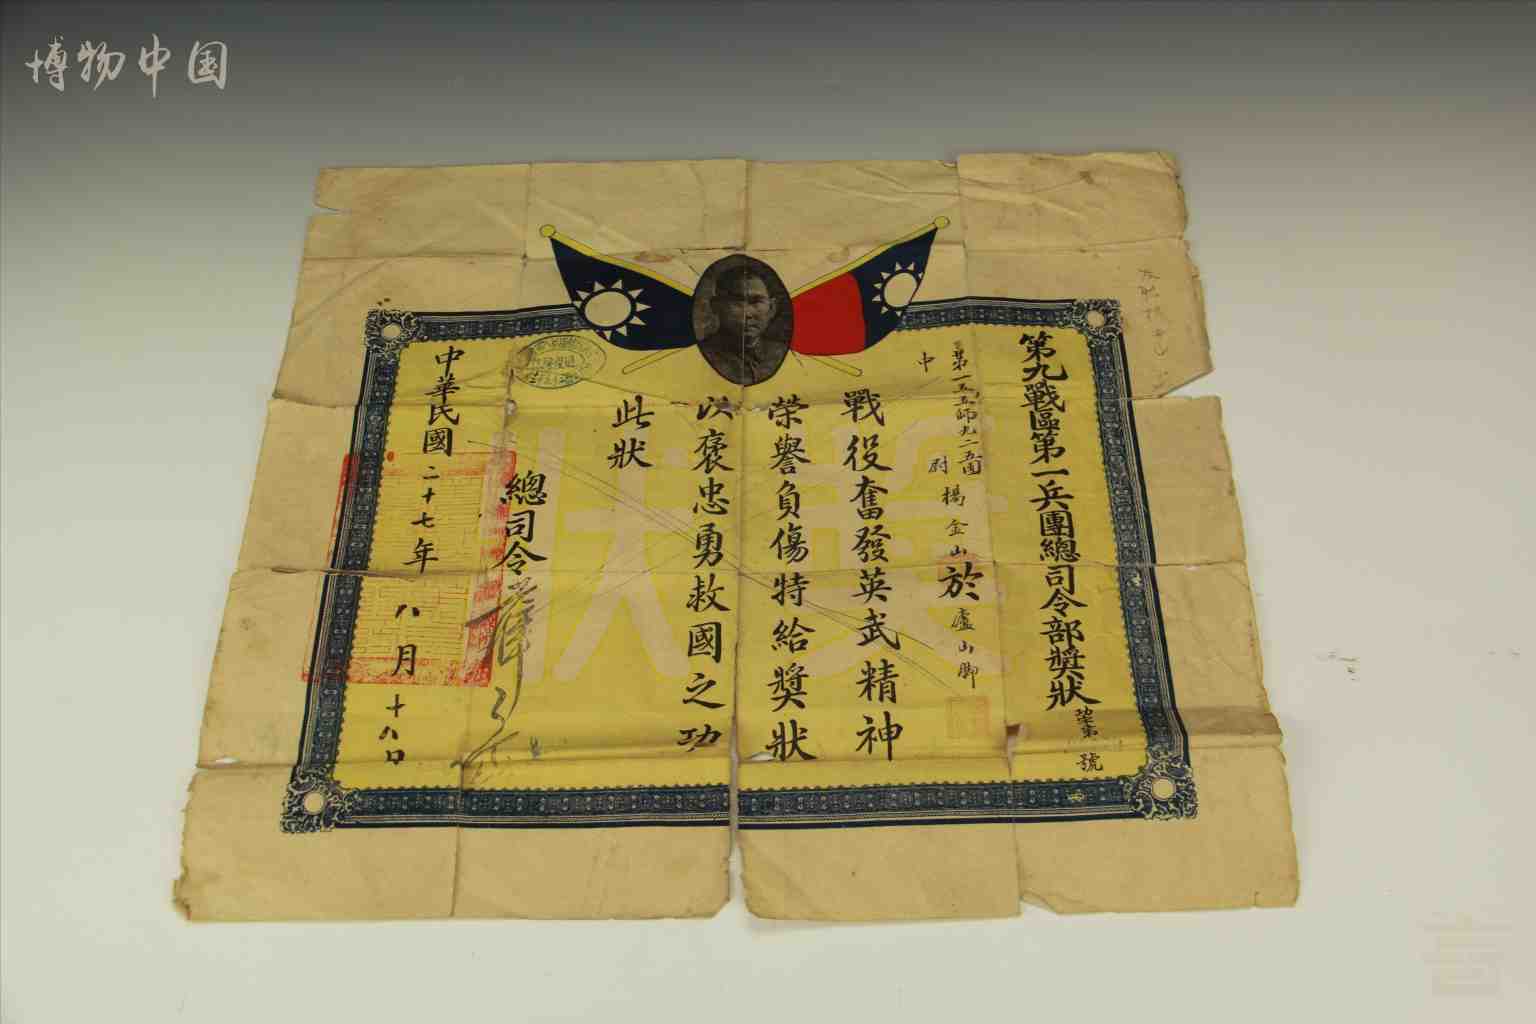 博物中国
第九戰區第一兵團總司令部獎狀
號
第一五五師九二五團
中尉楊金山於廬山脚
戰役奮發英武精神
榮譽負傷特給獎狀
以褒忠勇救國之功
此狀
總司令
中華民國二十七年八月十八日
獎狀